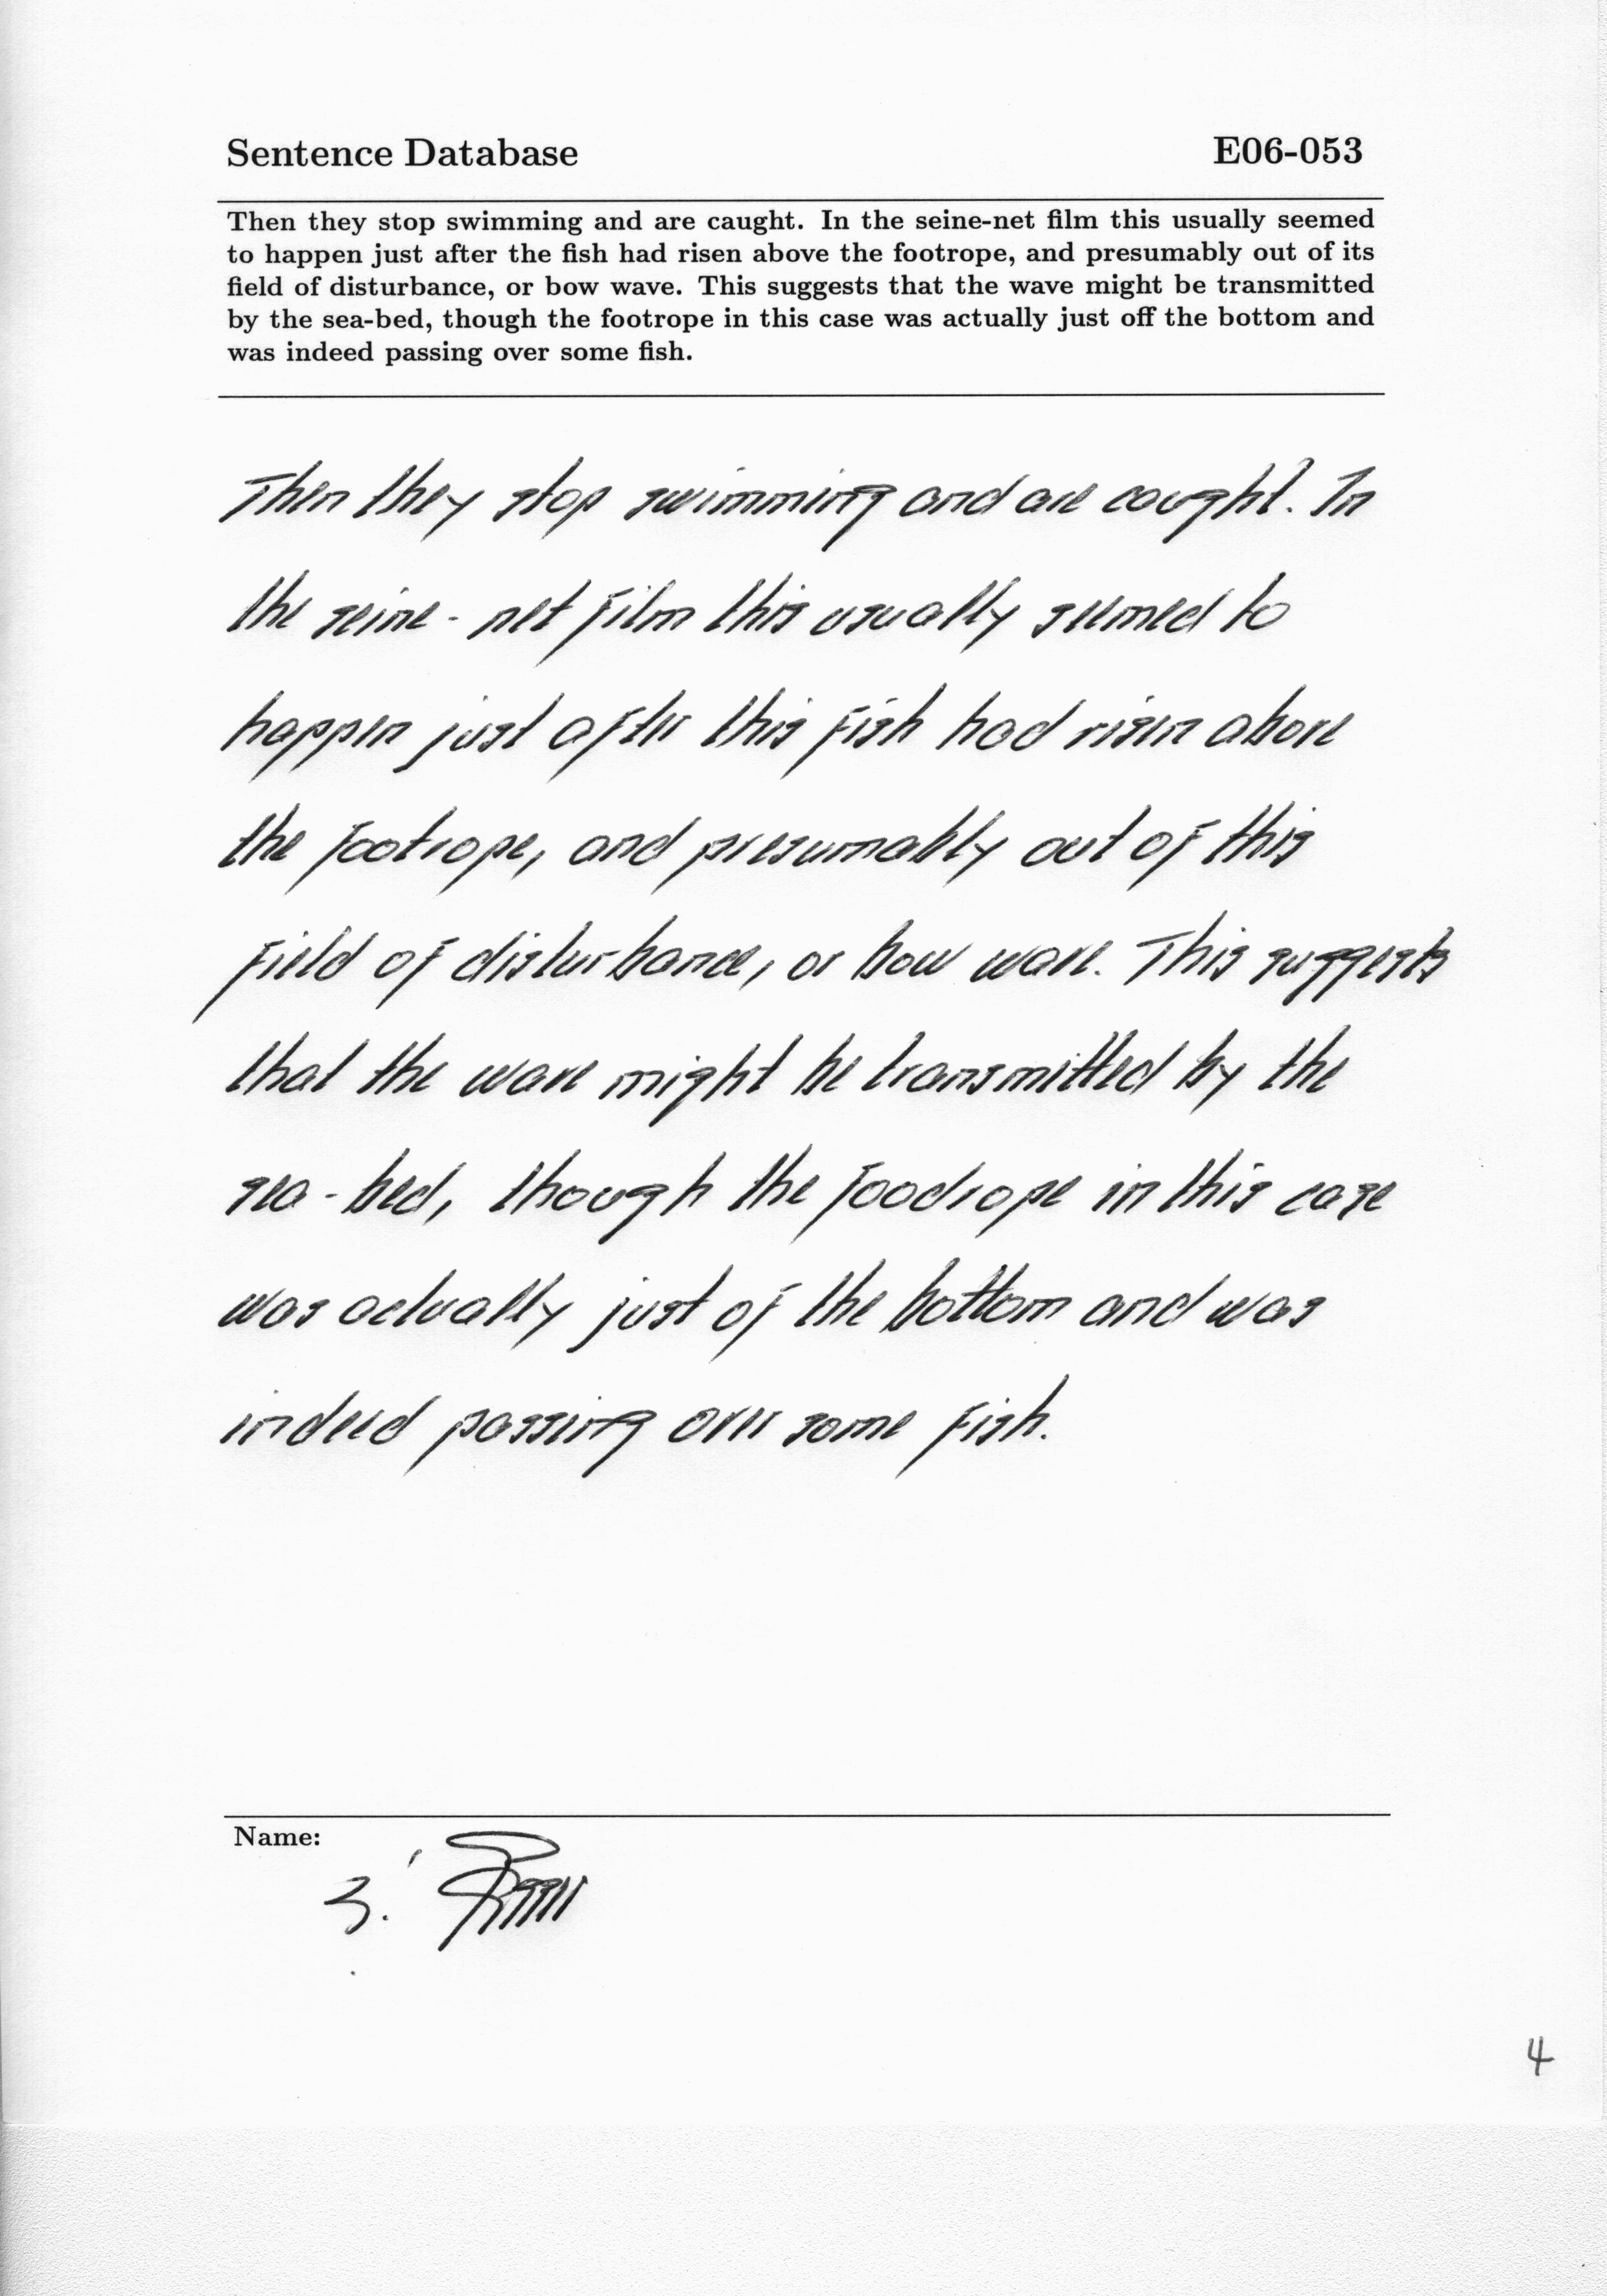 Sentence Database E06-053
Then they stop swimming and are caught. In the seine-net film this usually seemed
to happen just after the fish had risen above the footrope, and presumably out of its
field of disturbance, or bow wave. This suggests that the wave might be transmitted
by the sea-bed, though the footrope in this case was actually just off the bottom and
was indeed passing over some fish.
Then they stop swimming and are caught. In
the seine-net film this usually seemed to
happen just after this fish had risen above
the footrope, and presumably out of this
field of disturbance, or bow wave. This suggests
that the wave might be transmitted by the
sea-bed, though the foodrope in this case
was actually just of the bottom and was
indeed passing over some fish.
Name:
4